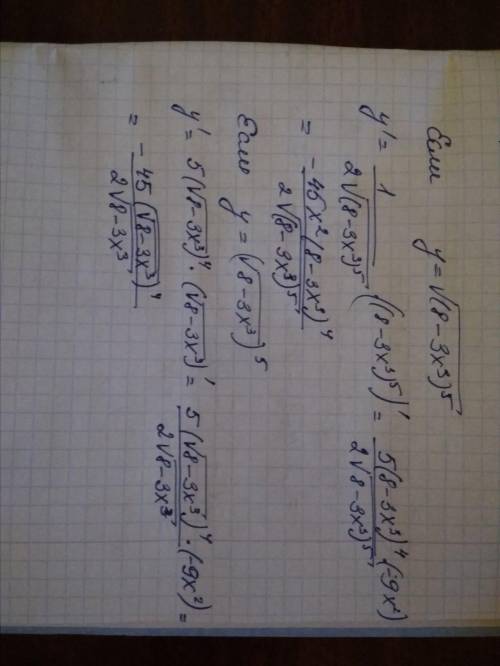 Если y = √(8-3x³)⁵
y' = 1/(2√(8-3x³)⁵) ((8-3x³)⁵)' = 5(8-3x³)⁴·(-9x²)/(2√8-3x³)⁵
= - 45x²(8-3x³)⁴/(2√(8-3x³)⁵)
Если y = (√8-3x³)⁵
y' = 5(√8-3x³)⁴·(√8-3x³)' = 5(√8-3x³)⁴/(2√8-3x³)·(-9x²) =
= - 45(√8-3x³)⁴/(2√8-3x³)